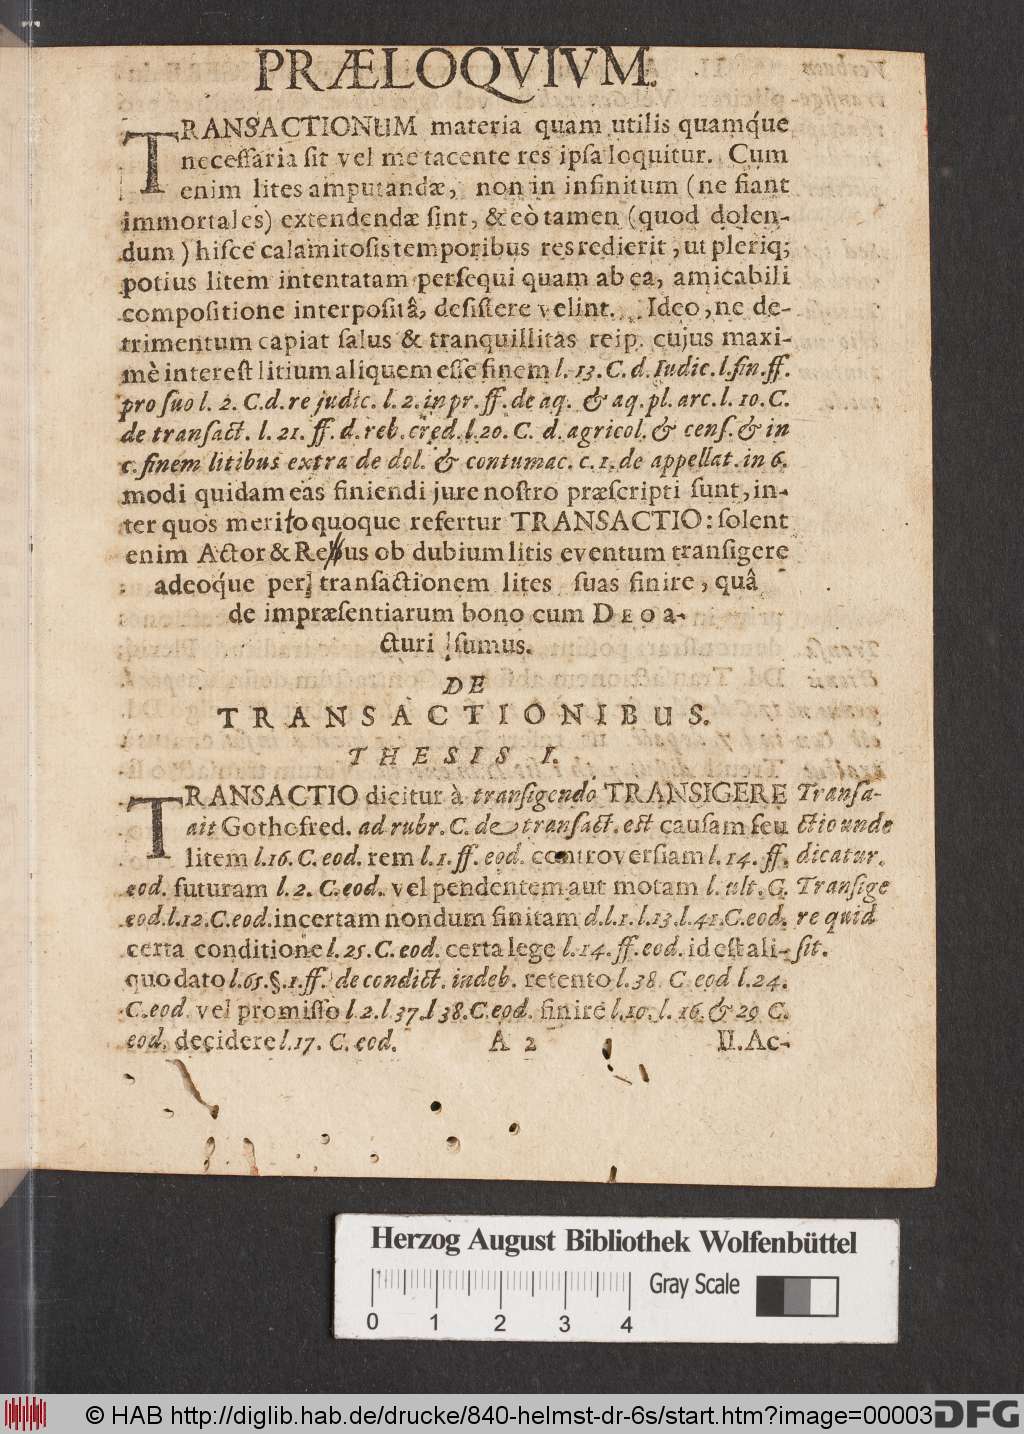 PRÆLOQVIVM.
TRANSACTIONUM materia quam utilis quamq́ue
necessaria sit vel me tacente res ipsa loquitur. Cum
enim lites amputandæ, non in infinitum (ne fiant
immortales) extendendæ sint, & eò tamen (quod dolen-
dum) hisce calamitosis temporibus res redierit, ut pleriq;
potius litem intentatam persequi quam ab ea, amicabili
compositione interpositâ, desistere velint. Ideo, ne de-
trimentum capiat salus & tranquillitas reip. cujus maxi-
mè interest litium aliquem esse finem l. 13. C. d. Iudic. l. fin. ff.
pro suo l. 2. C. d. re judic. l. 2. in pr. ff. de aq. & aq. pl. arc. l. 10. C.
de transact. l. 21. ff. d. reb. cred. l. 20. C. d. agricol. & cens. & in
c. finem litibus extra de dol. & contumac. c. 1. de appellat. in 6.
modi quidam eas finiendi jure nostro præscripti sunt, in-
ter quos merito quoque refertur TRANSACTIO: solent
enim Actor & Reus ob dubium litis eventum transigere
adeoq́ue per transactionem lites suas finire, quâ
de impræsentiarum bono cum DEO a-
cturi sumus.
DE
TRANSACTIONIBUS.
THESIS I.
TRANSACTIO dicitur à transigendo TRANSIGERE Transa-
ait Gothofred. ad rubr. C. de transact. est causam seu ctio unde
litem l. 16. C. eod. rem l. 1. ff. eod. controversiam l. 14. ff. dicatur.
eod. futuram l. 2. C. eod. vel pendentem aut motam l. ult. C. Transige
eod. l. 12. C. eod. incertam nondum finitam d. l. 1. l. 13. l. 41. C. eod. re quid
certa conditione l. 25. C. eod. certa lege l. 14. ff. eod. id est ali- sit.
quo dato l. 65. §. 1. ff. de condict. indeb. retento l. 38. C. eod l. 24.
C. eod. vel promisso l. 2. l 37. l 38. C. eod. finire l. 10. l. 16. & 29 C.
eod. decidere l. 17. C. eod. A 2 II. Ac-
Herzog August Bibliothek Wolfenbüttel
Gray Scale
0 1 2 3 4
© HAB http://diglib.hab.de/drucke/840-helmst-dr-6s/start.htm?image=00003
DFG